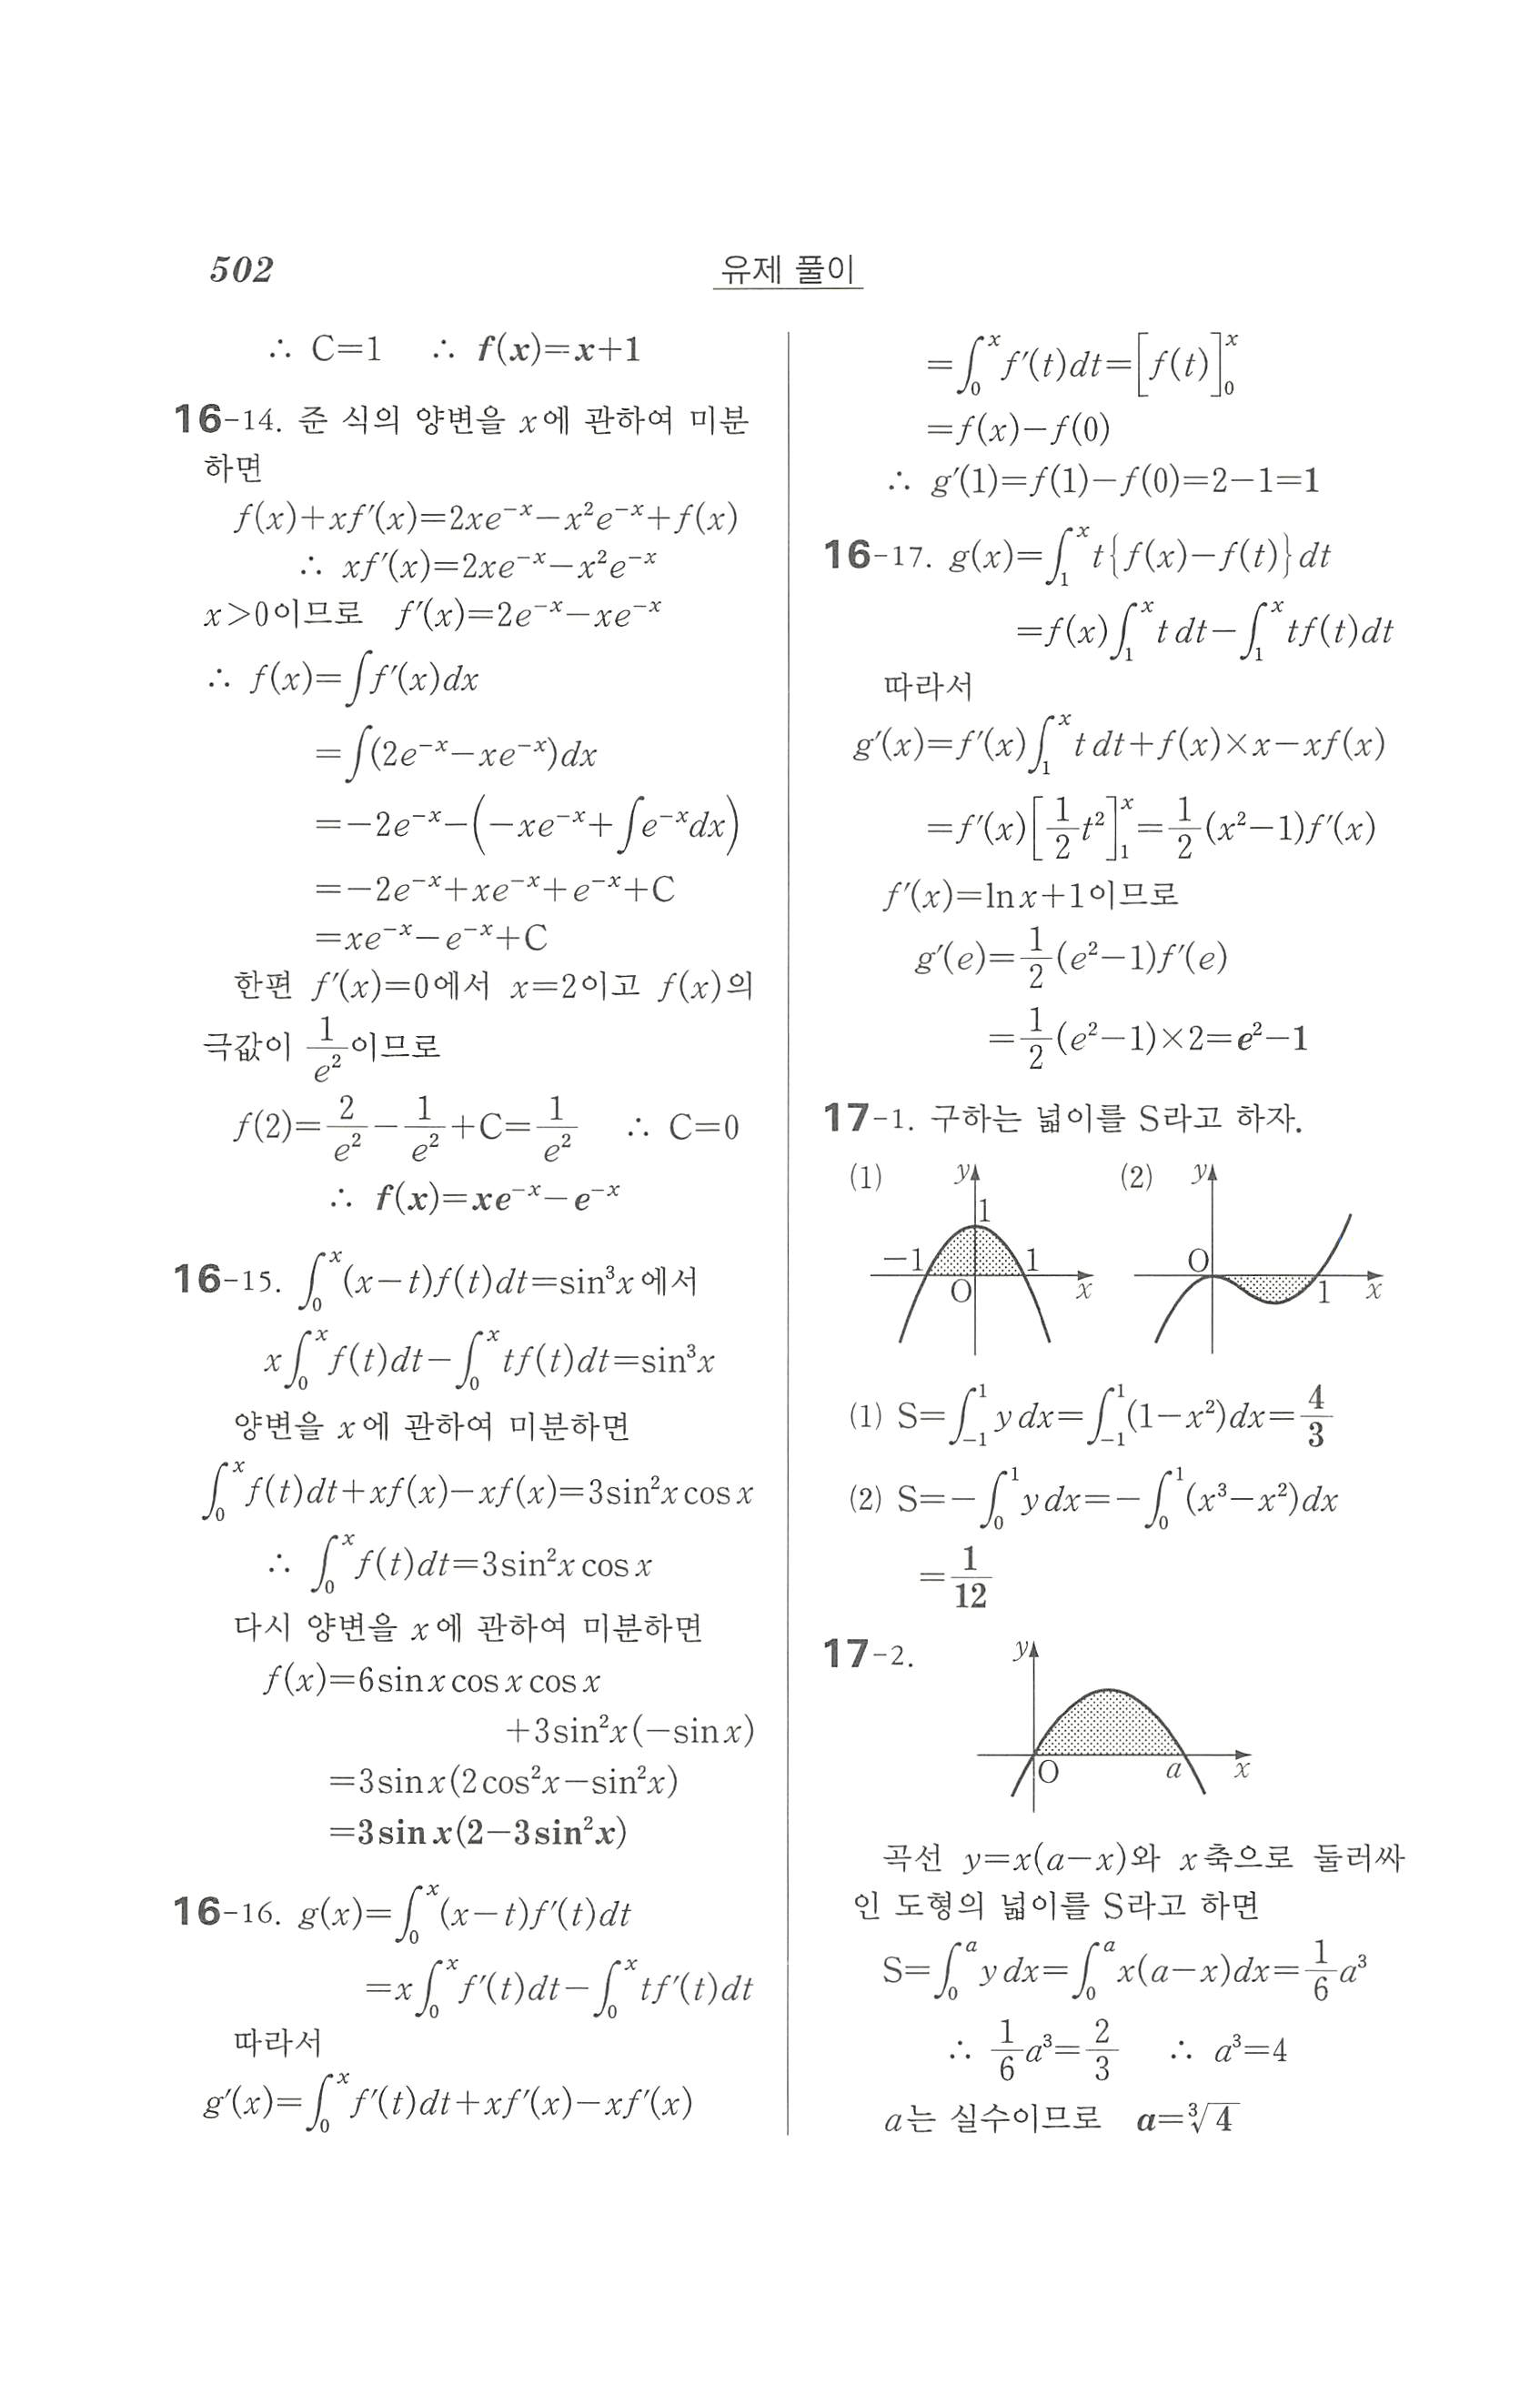 502
유제 풀이
∴ C=1 ∴ f(x)=x+1
16-14. 준 식의 양변을 x에 관하여 미분
하면
f(x)+xf′(x)=2xe⁻ˣ−x²e⁻ˣ+f(x)
∴ xf′(x)=2xe⁻ˣ−x²e⁻ˣ
x>0이므로 f′(x)=2e⁻ˣ−xe⁻ˣ
∴ f(x)=∫f′(x)dx
=∫(2e⁻ˣ−xe⁻ˣ)dx
=−2e⁻ˣ−(−xe⁻ˣ+∫e⁻ˣdx)
=−2e⁻ˣ+xe⁻ˣ+e⁻ˣ+C
=xe⁻ˣ−e⁻ˣ+C
한편 f′(x)=0에서 x=2이고 f(x)의
극값이 1/e²이므로
f(2)=2/e²−1/e²+C=1/e² ∴ C=0
∴ f(x)=xe⁻ˣ−e⁻ˣ
16-15. ∫₀ˣ(x−t)f(t)dt=sin³x에서
x∫₀ˣf(t)dt−∫₀ˣtf(t)dt=sin³x
양변을 x에 관하여 미분하면
∫₀ˣf(t)dt+xf(x)−xf(x)=3sin²x cos x
∴ ∫₀ˣf(t)dt=3sin²x cos x
다시 양변을 x에 관하여 미분하면
f(x)=6sin x cos x cos x
+3sin²x(−sin x)
=3sin x(2cos²x−sin²x)
=3sin x(2−3sin²x)
16-16. g(x)=∫₀ˣ(x−t)f′(t)dt
=x∫₀ˣf′(t)dt−∫₀ˣtf′(t)dt
따라서
g′(x)=∫₀ˣf′(t)dt+xf′(x)−xf′(x)
=∫₀ˣf′(t)dt=[f(t)]₀ˣ
=f(x)−f(0)
∴ g′(1)=f(1)−f(0)=2−1=1
16-17. g(x)=∫₁ˣt{f(x)−f(t)}dt
=f(x)∫₁ˣt dt−∫₁ˣtf(t)dt
따라서
g′(x)=f′(x)∫₁ˣt dt+f(x)×x−xf(x)
=f′(x)[1/2 t²]₁ˣ=1/2(x²−1)f′(x)
f′(x)=ln x+1이므로
g′(e)=1/2(e²−1)f′(e)
=1/2(e²−1)×2=e²−1
17-1. 구하는 넓이를 S라고 하자.
(1) y 1 −1 1 O x (2) y O 1 x
(1) S=∫₋₁¹y dx=∫₋₁¹(1−x²)dx=4/3
(2) S=−∫₀¹y dx=−∫₀¹(x³−x²)dx
=1/12
17-2. y O a x
곡선 y=x(a−x)와 x축으로 둘러싸
인 도형의 넓이를 S라고 하면
S=∫₀ᵃy dx=∫₀ᵃx(a−x)dx=1/6 a³
∴ 1/6 a³=2/3 ∴ a³=4
a는 실수이므로 a=∛4